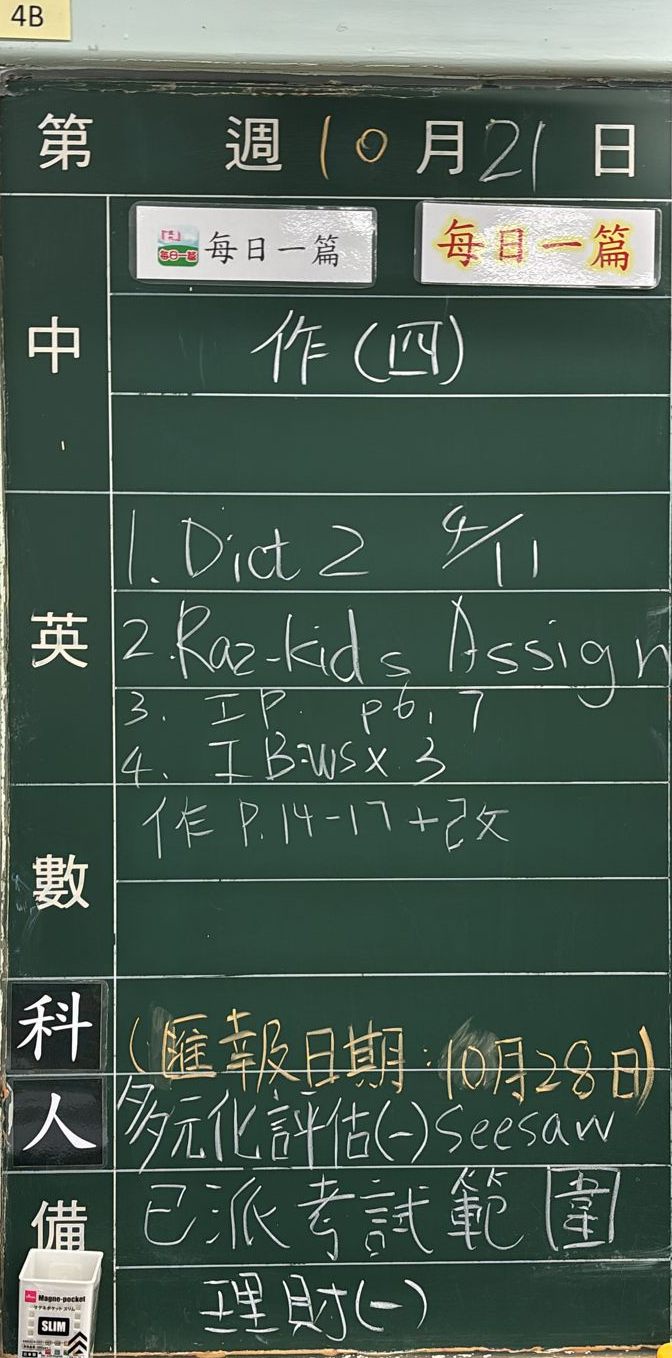 4B
第 週 10 月 21 日
中
每日一篇 每日一篇
作(四)
英
1. Dict 2 4/11
2. Raz-kids Assign
3. IP. p6, 7
4. IB:WS x 3
數
作 P.14-17+改
科
(匯報日期:10月28日)
人
多元化評估(一)seesaw
備
已派考試範圍
理財(一)
Magne-pocket
SLIM